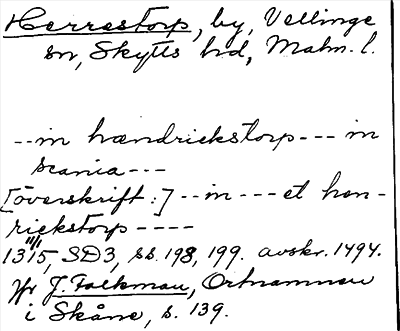 Herrestorp, by, Vellinge
sn, Skytts hd, Malm. l.
--in hændrickstorp--- in
scania---
[överskrift:]--in---et hen-
rickstorp----
13 11/1 15, SD3, ss. 198, 199. avskr. 1494.
Jfr J. Falkman, Ortnamnen
i Skåne, s. 139.